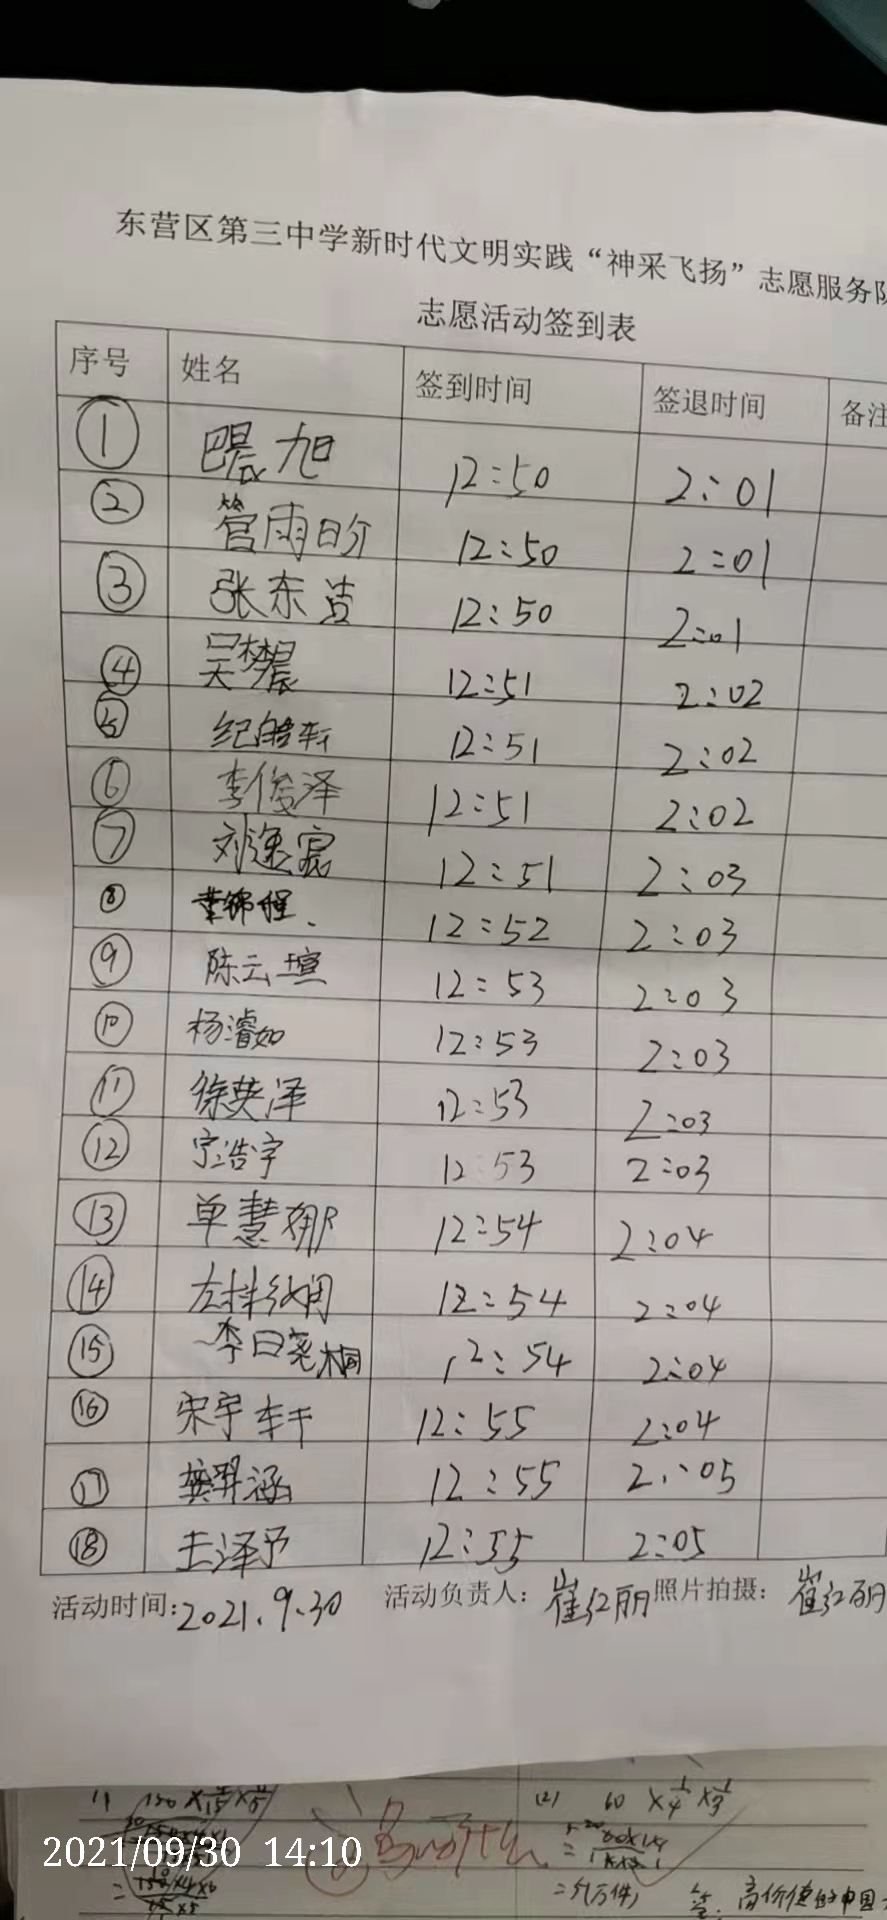 东营区第三中学新时代文明实践“神采飞扬”志愿服务队
志愿活动签到表
序号 姓名 签到时间 签退时间 备注
① 巴晨旭 12:50 2:01
② 管雨盼 12:50 2:01
③ 张东洁 12:50 2:01
④ 吴梦晨 12:51 2:02
⑤ 纪皓轩 12:51 2:02
⑥ 李俊泽 12:51 2:02
⑦ 刘逸宸 12:51 2:03
⑧ 锦程 12:52 2:03
⑨ 陈云瑄 12:53 2:03
⑩ 杨濬如 12:53 2:03
⑪ 徐英泽 12:53 2:03
⑫ 宁浩宇 12:53 2:03
⑬ 单慧娜 12:54 2:04
⑭ 左 12:54 2:04
⑮ 李曰尧桐 12:54 2:04
⑯ 宋宇轩 12:55 2:04
⑰ 羿涵 12:55 2:05
⑱ 王泽予 12:55 2:05
活动时间:2021.9.30 活动负责人:崔红丽 照片拍摄:崔红丽
(2) 60×1/4×1/3
2021/09/30 14:10